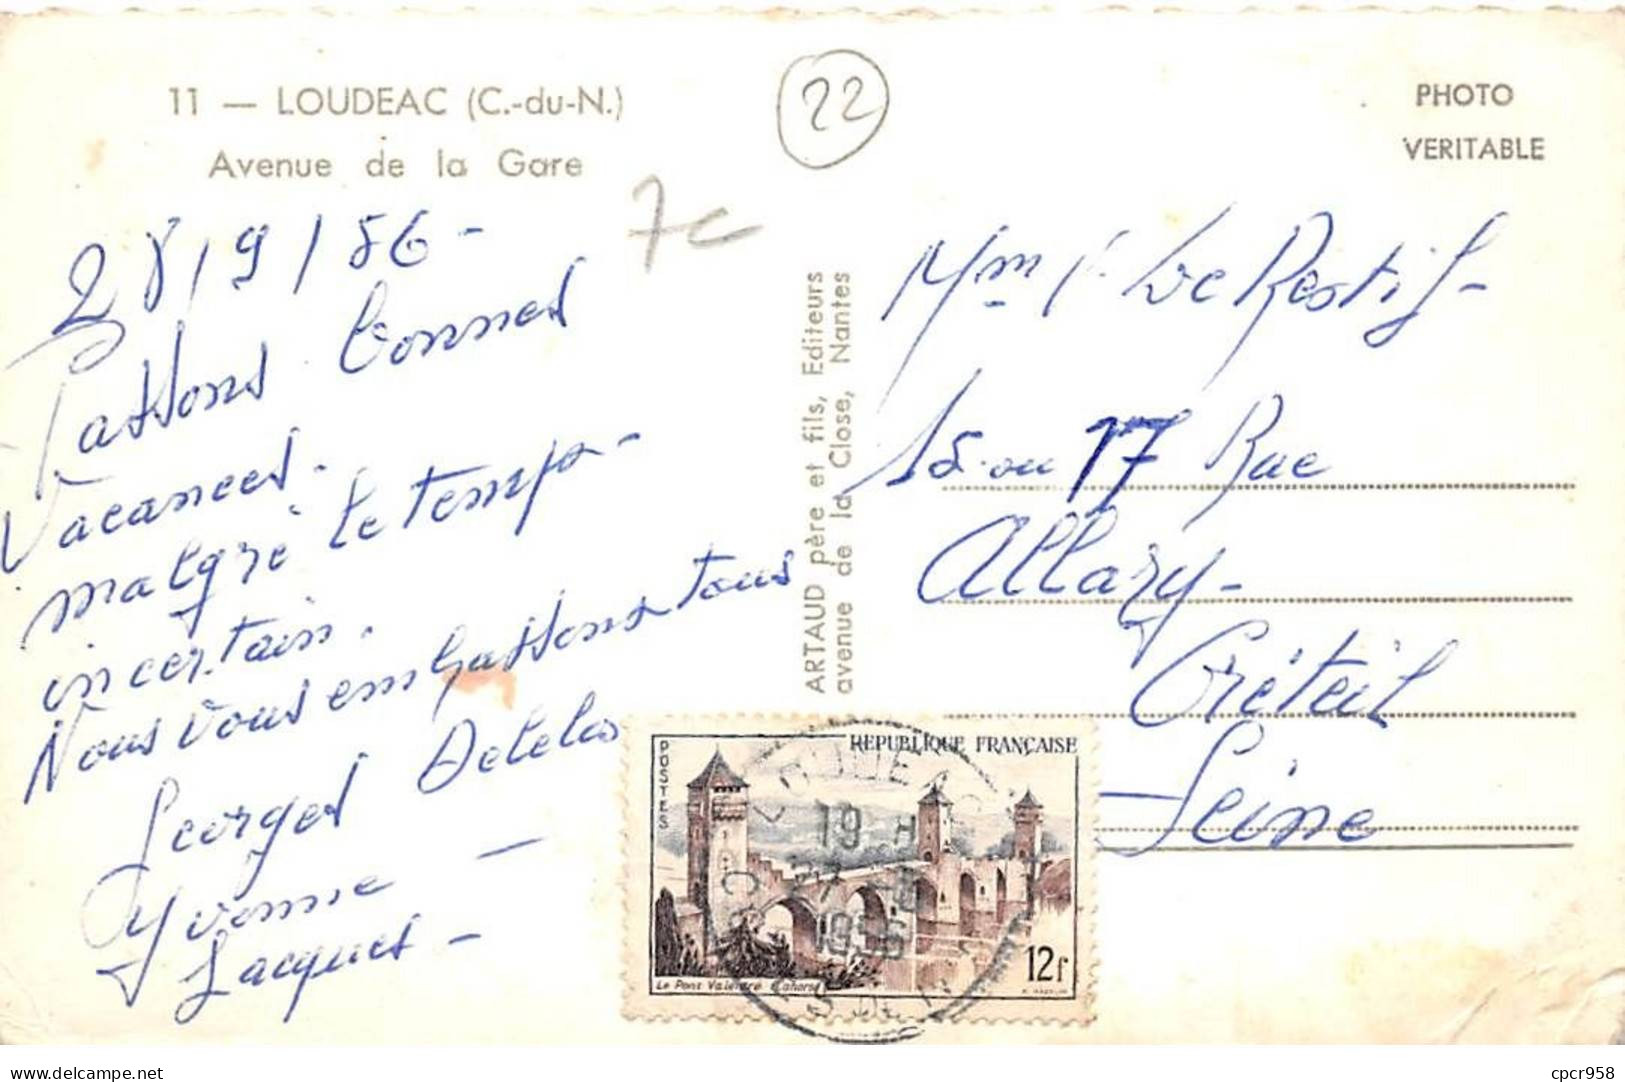 11 — LOUDEAC (C.-du-N.)
Avenue de la Gare
22
7c
PHOTO
VERITABLE
28/9/56 -
Passons bonnes
Vacances.
malgré le temps -
incertain.
Nous vous embrassons tous
Georges Delelas
Yvonne —
Jacques -
ARTAUD père et fils, Editeurs
avenue de la Close, Nantes
Le Restif -
15 ou 17 Rue
Allary -
Créteil
Seine
REPUBLIQUE FRANÇAISE
POSTES
LOUDEAC
19 H
1956
12f
Le Pont Valentré Cahors
delcampe.net
cpcr958